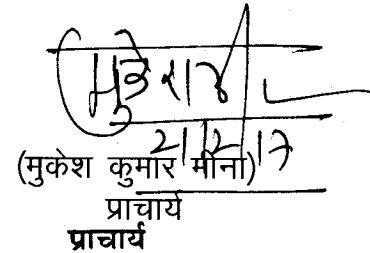 मुकेश
21/12/17
(मुकेश कुमार मीना)
प्राचार्य
प्राचार्य